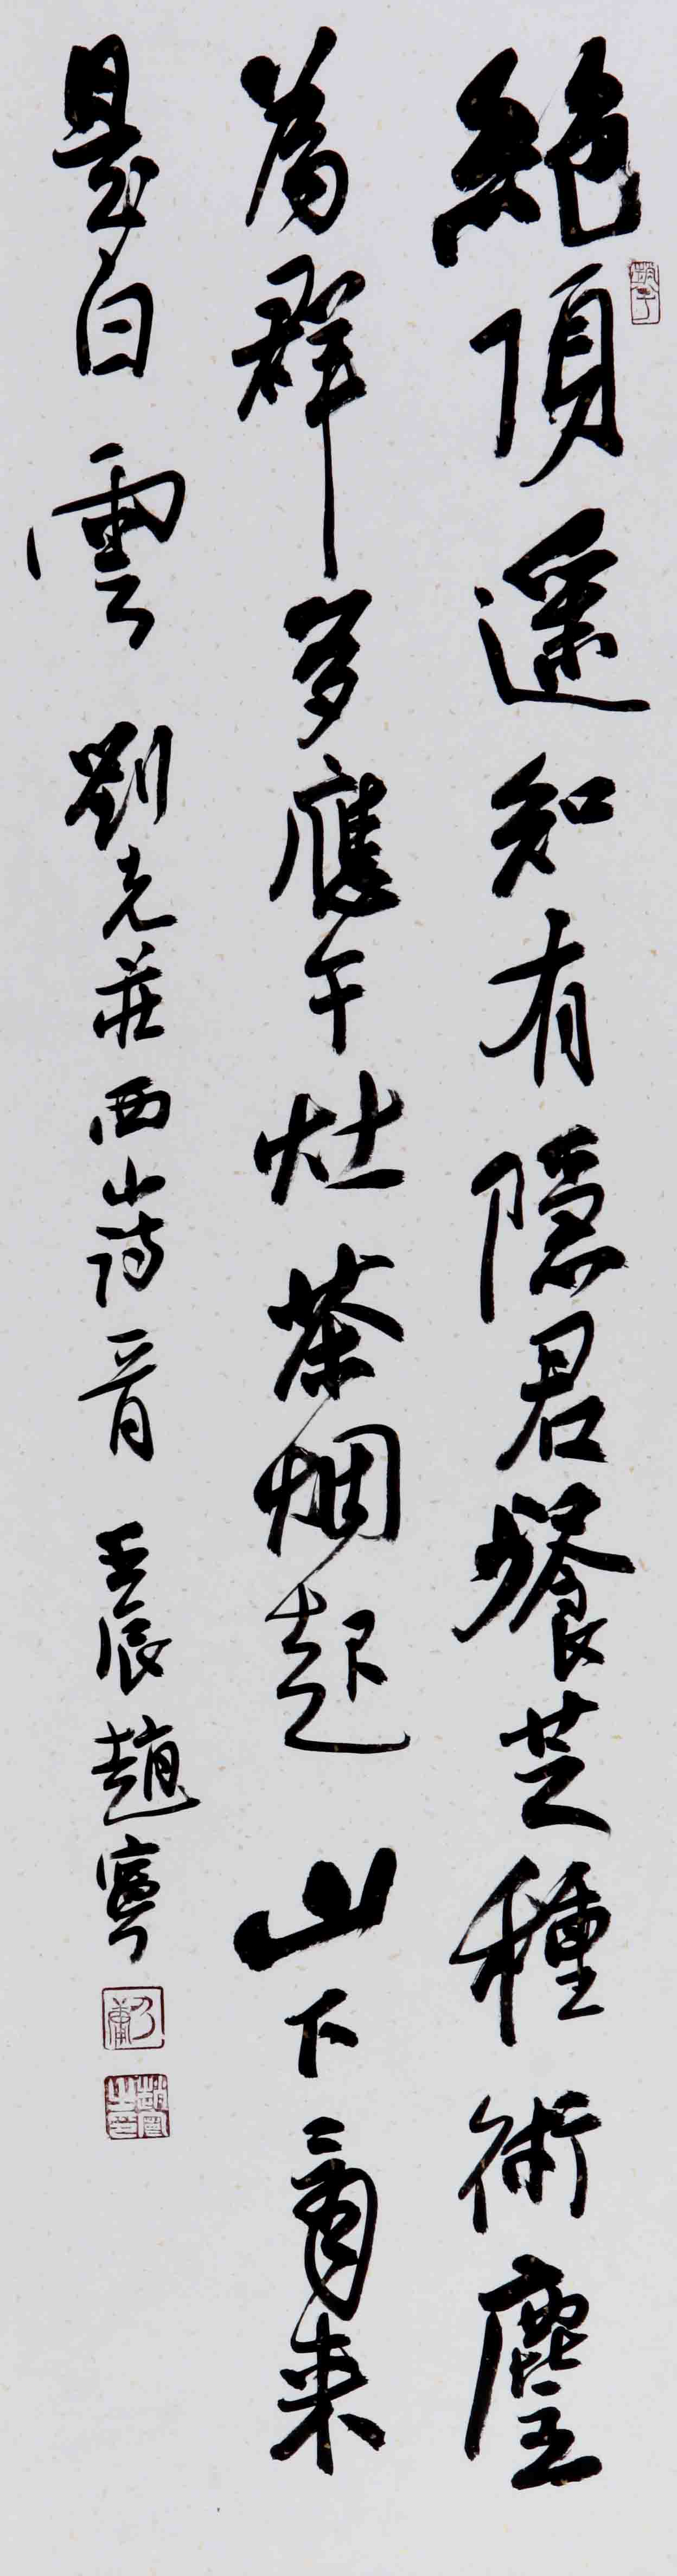 絶頂遥知有隐君餐芝種術麈
為群多應午灶茶烟起山下看来
是白雲 劉克莊西山詩一首 壬辰趙寧